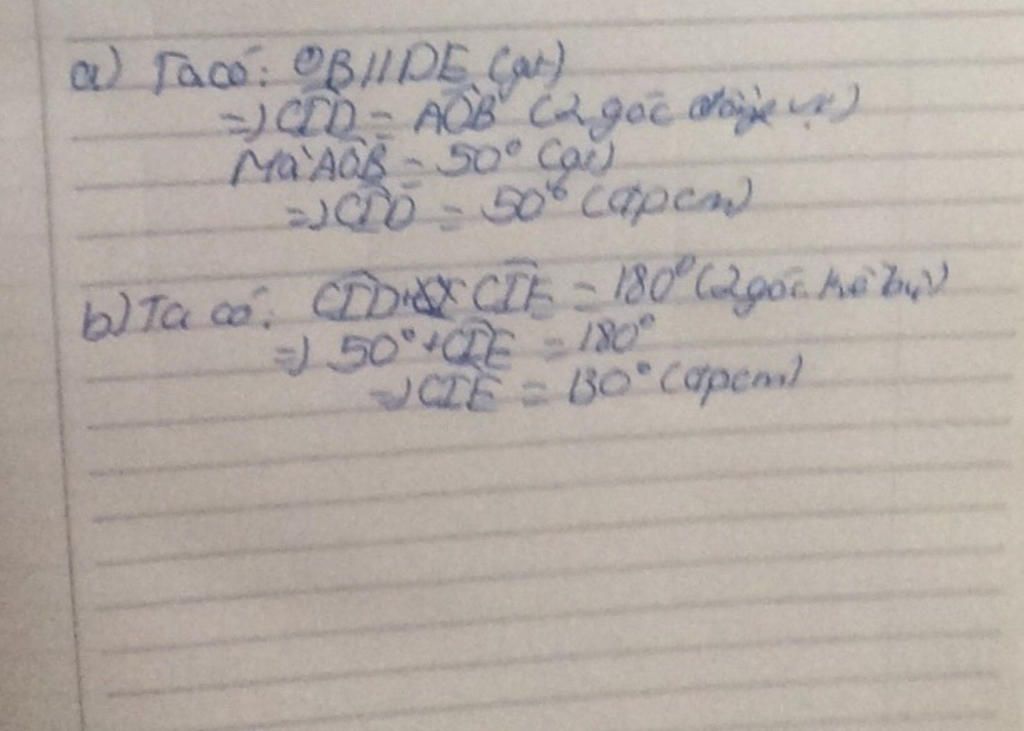 a) Ta có: OB//DE (gt)
=> \widehat{CID} = \widehat{AOB} (2 góc đồng vị)
Mà \widehat{AOB} = 50° (gt)
=> \widehat{CID} = 50° (đpcm)
b) Ta có: \widehat{CID} + \widehat{CIE} = 180° (2 góc kề bù)
=> 50° + \widehat{CIE} = 180°
=> \widehat{CIE} = 130° (đpcm)